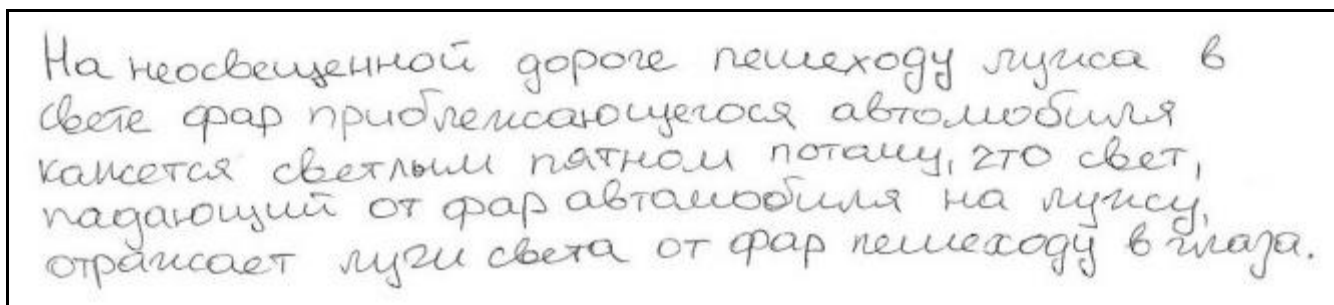 На неосвещенной дороге пешеходу лужа в
свете фар приближающегося автомобиля
кажется светлым пятном потому, что свет,
падающий от фар автомобиля на лужу,
отражает лучи света от фар пешеходу в глаза.